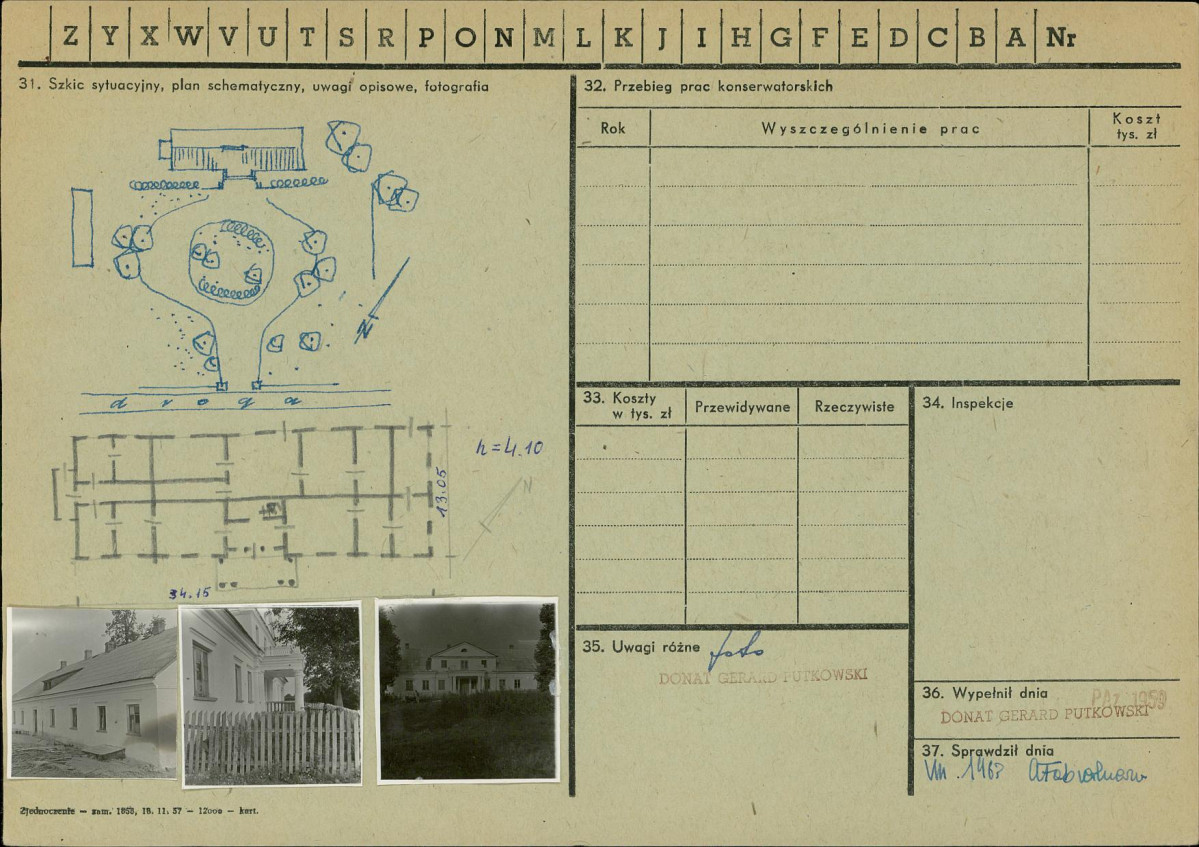 Z Y X W V U T S R P O N M L K J I H G F E D C B A Nr
31. Szkic sytuacyjny, plan schematyczny, uwagi opisowe, fotografia
N
droga
h = 4.10
13.05
N
34.15
Zjednoczenie — zam. 1853, 18. 11. 57 — 12000 — kart.
32. Przebieg prac konserwatorskich
Rok
Wyszczególnienie prac
Koszt
tys. zł
33. Koszty
w tys. zł
Przewidywane
Rzeczywiste
34. Inspekcje
35. Uwagi różne foto
DONAT GERARD PUTKOWSKI
36. Wypełnił dnia
PAŹ 1959
DONAT GERARD PUTKOWSKI
37. Sprawdził dnia